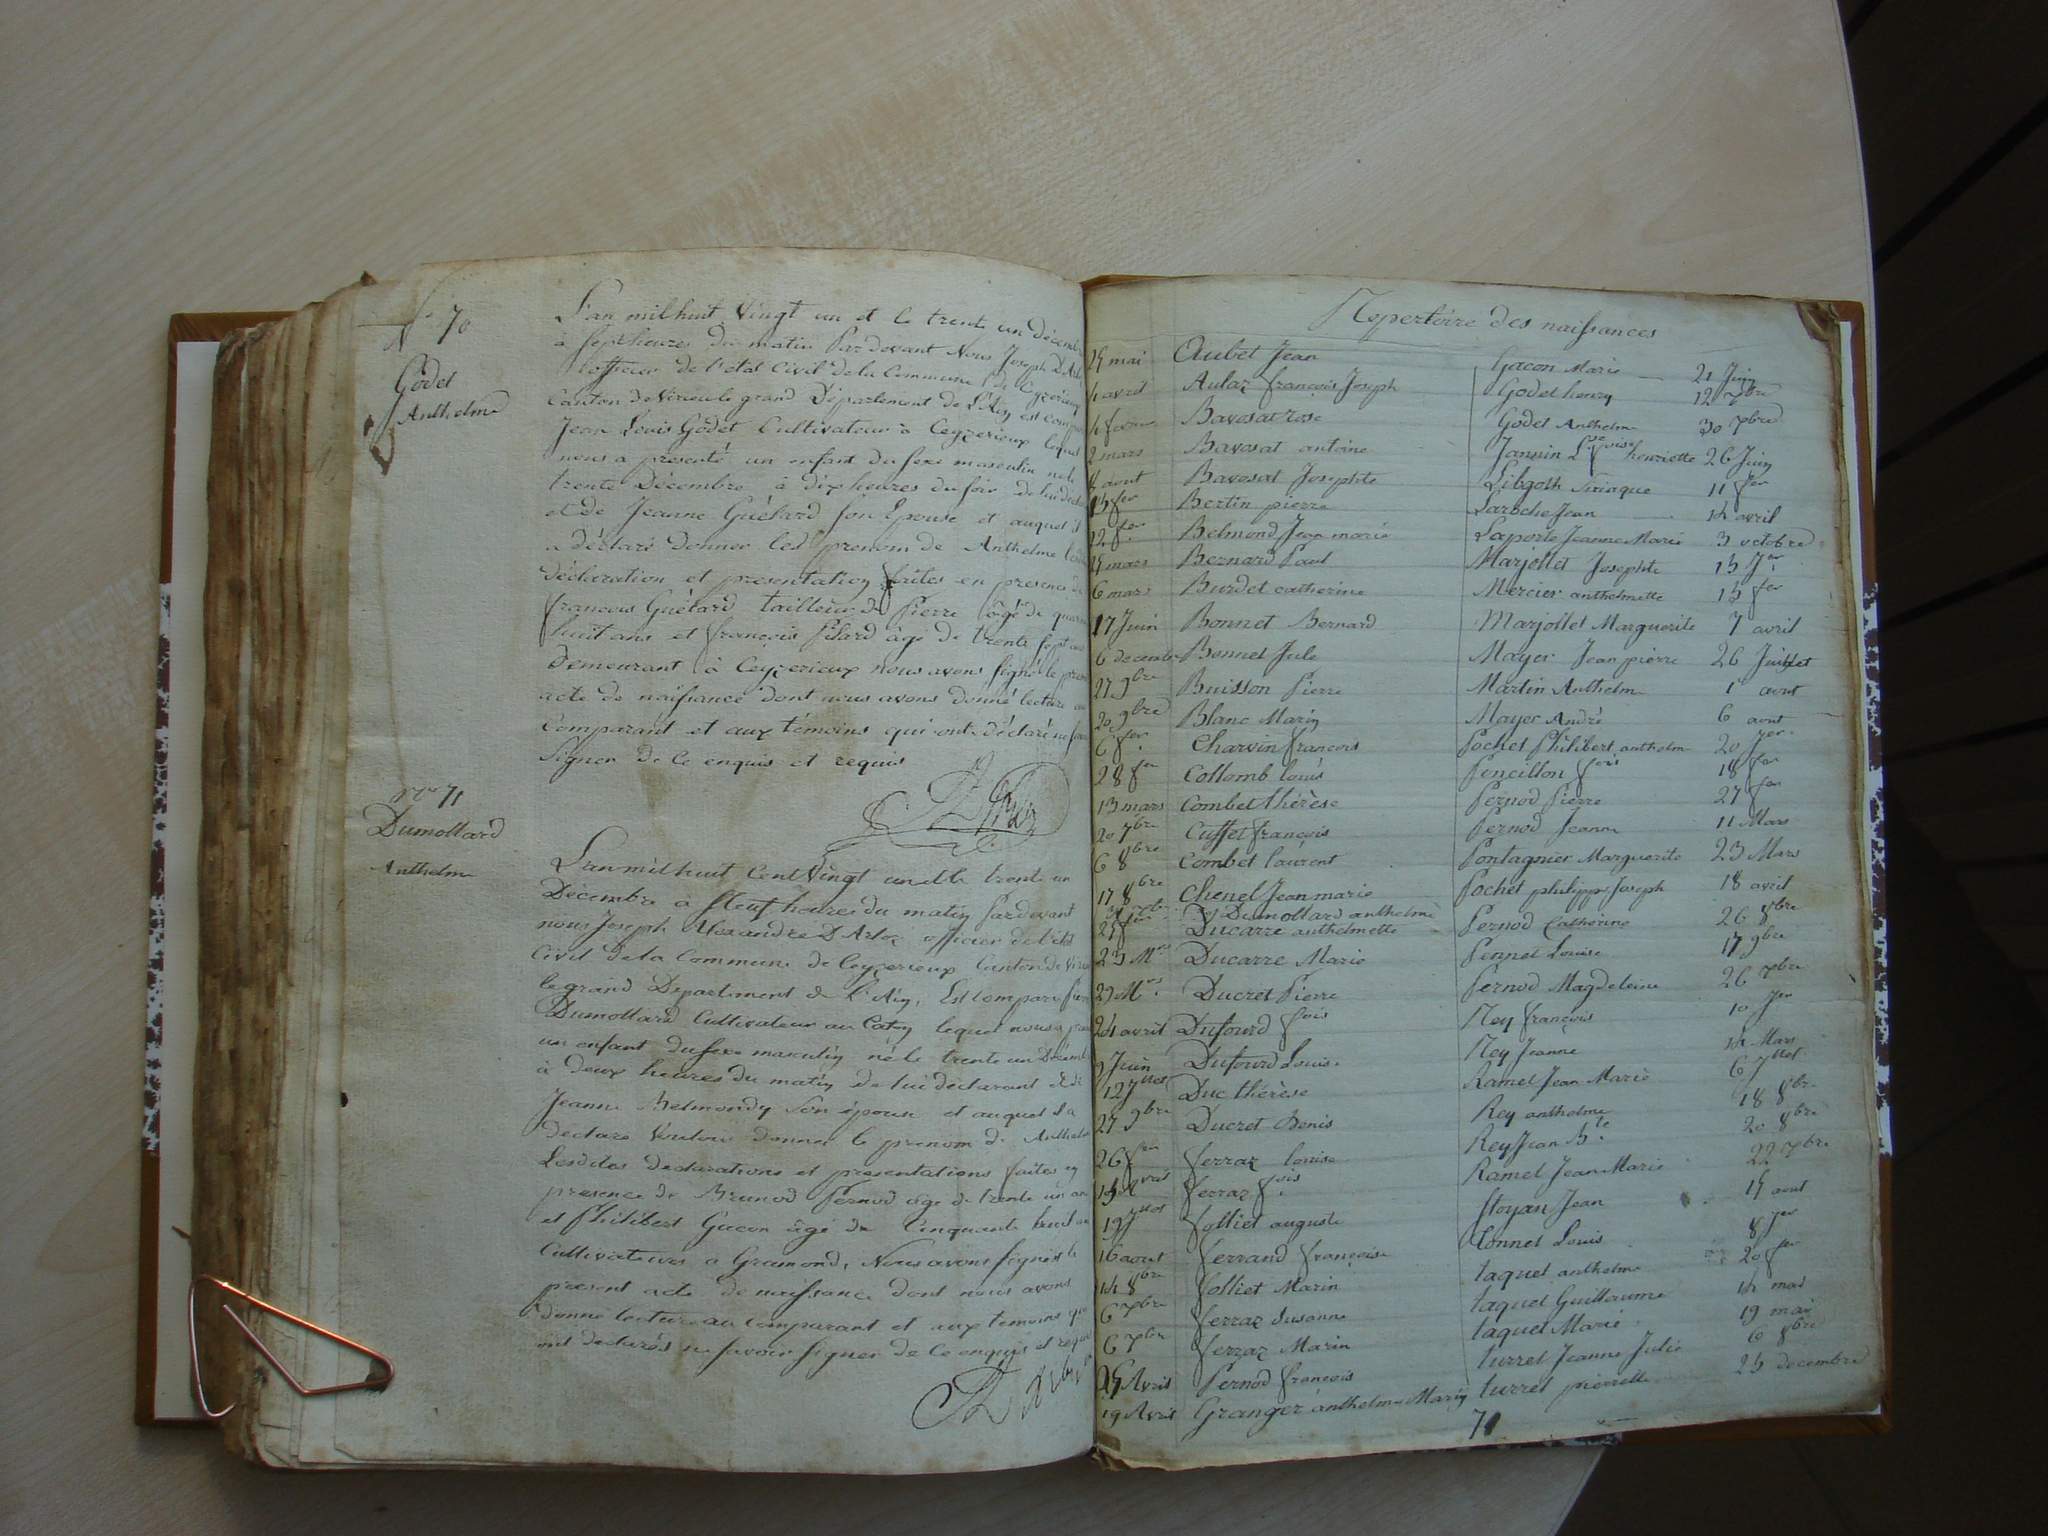 N° 70
Godet
Anthelme
L'an mil huit Vingt un et le trente un décembre
à sept heures du matin Par devant Nous Joseph
officier de l'état Civil de la Commune de Ceyzerieux
Canton de Virieu le grand Département de L'Ain est comparu
Jean Louis Godet Cultivateur à Ceyzerieux lequel
nous a presenté un enfant du sexe masculin né le
trente Décembre à dix heures du soir de lui
et de Jeanne Guétard son Epouse et auquel il
a déclaré donner led. prenom de Anthelme
déclaration et presentation faites en presence de
françois Guétard tailleur de Pierre âgé de
huit ans et françois Pilard âgé de trente sept ans
Demeurant à Ceyzerieux nous avons signé le
acte de naissance dont nous avons donné lecture au
Comparant et aux témoins qui ont déclaré ne
Signer de ce enquis et requis
N° 71
Dumollard
Anthelme
L'an mil huit Cent Vingt un et le trente un
Décembre à Neuf heures du matin Pardevant
nous Joseph Alexandre D'Arloz officier de l'état
Civil de la Commune de Ceyzerieux Canton de
le grand Département de L'Ain, Est comparu
Dumollard Cultivateur au lequel nous a
un enfant du sexe masculin né le trente un
à deux heures du matin de lui déclarant et de
Jeanne Belmondy son épouse et auquel il a
déclaré Vouloir donner le prenom de Anthelme
Lesdites declarations et presentations faites en
presence de Brunod Pernod age de trente un ans
et Philibert Gacon âgé de Cinquante huit ans
Cultivateurs a Gramond, Nous avons signés le
present acte de naissance dont nous avons
donné lecture au comparant et aux temoins qui
ont declarés ne savoir signer de ce enquis et requis
Repertoire des naissances
mai Aubet Jean
avril Aulaz françois Joseph
Bavosat rose
2 mars Bavosat antoine
aout Bavosat Josephte
13 fer Bertin pierre
12 fer Belmond Jean marie
mars Bernard Paul
6 mars Burdet catherine
17 Juin Bonnet Bernard
6 decembre Bonnet Jule
27 9bre Buisson Pierre
20 9bre Blanc Marin
6 fer Charvin francois
28 fer Collomb louis
13 mars Combet thérèse
20 7bre Cusset françois
6 8bre Combet laurent
17 8bre Chenel Jean marie
Dumollard anthelme
Ducarre anthelmette
23 Mrs Ducarre Marie
29 Mrs Ducret Pierre
24 avril Dufourd fois
9 Juin Dufourd Louis
12 Jllet Duc thérèse
27 9bre Ducret Denis
26 fer ferraz louise
ferraz fois
19 Jllet folliet auguste
16 aout ferrand françoise
14 8bre folliet Marin
6 7bre ferraz Susanne
6 7bre ferraz Marin
Avril Pernod francois
19 Avril Granger anthelme Marin
Gacon Marie 21 Juin
Godet henry 12 7bre
Godet Anthelme 30 7bre
Jannin henriette 26 Juin
Libgoth 11 fer
Laroche Jean 14 avril
Laporte Jeanne Marie 3 octobre
Marjollet Josephte 13 Jer
Mercier anthelmette 13 fer
Marjollet Marguerite 7 avril
Mayer Jean pierre 26 Juillet
Martin Anthelme 1 aout
Mayer André 6 aout
Pochet Philibert anthelme 20 Jer
Pencillon fois 18 fer
Pernod Pierre 27 fer
Pernod Jeanne 11 Mars
Pontagnier Marguerite 23 Mars
Pochet philippe Joseph 18 avril
Pernod Catherine 26 8bre
Pennet Louise 17 9bre
Pernod Magdeleine 26 7bre
Rey françois 10 Jer
Rey Jeanne 14 Mars
Ramel Jean Marie 6 Jllet
Rey anthelme 18 8bre
Rey Jean Bte 20 8bre
Ramel Jean Marie 22 7bre
Royan Jean aout
tonnet Louis 8 Jer
taquet anthelme 20 fer
taquet Guillaume 14 mai
taquet Marie 19 mai
turrel Jeanne Julie 6 8bre
turrel pierrette 25 decembre
71